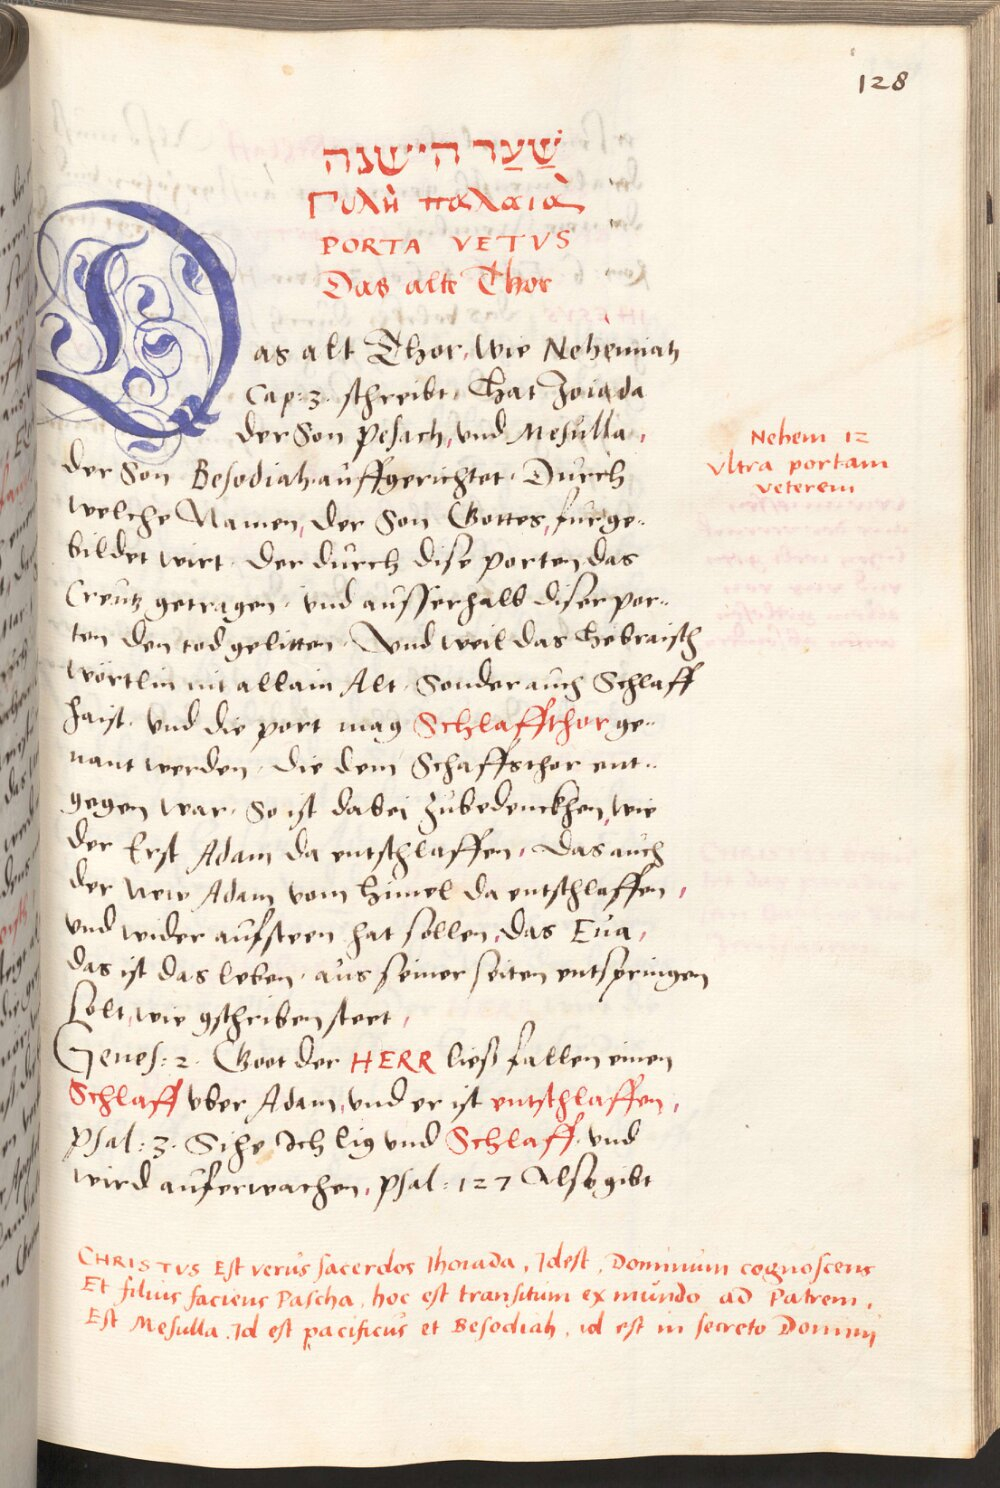 128
שַׁעַר הישנה
Πυλὴ παλαιὰ
PORTA VETVS
Das alte Thor
Das alt Thor, wie Nehemiah
Cap: 3. schreibt. Hat Joiada
der Son Pesach, und Mesulla,
der Son Besodiah auffgerichtet. Durch
welche Namen, der Son Gottes, fürge-
bildet wirt. Der durch dise porten das
Creutz getragen. und ausserhalb diser por-
ten den tod gelitten. Und weil das Hebraisch
wörtlin nit allain Alt. Sonder auch Schlaff
haist. und die port mag Schlaffthor ge-
nant werden. die dem Schaffsthor ent-
gegen war. So ist dabei zubedenckhen, wie
der Erst Adam da entschlaffen, das auch
der New Adam vom himel da entschlaffen,
und wider aufsteen hat sollen, das Eua,
das ist das leben. aus seiner seiten entspringen
solt, wie gschriben steet,
Genes: 2. Gott der HERR ließ fallen einen
Schlaff vber Adam, und er ist entschlaffen,
Psal: 3. Sihe Ich lig und Schlaff. und
wird auferwachen, Psal: 127 Also gibt
Nehem 12
Vltra portam
veterem
CHRISTVS Est verus sacerdos Ihoiada, Idest, Dominum cognoscens
Et filius faciens Pascha, hoc est transitum ex mundo ad Patrem,
Est Mesulla, Id est pacificus et Besodiah, id est in secreto Domini